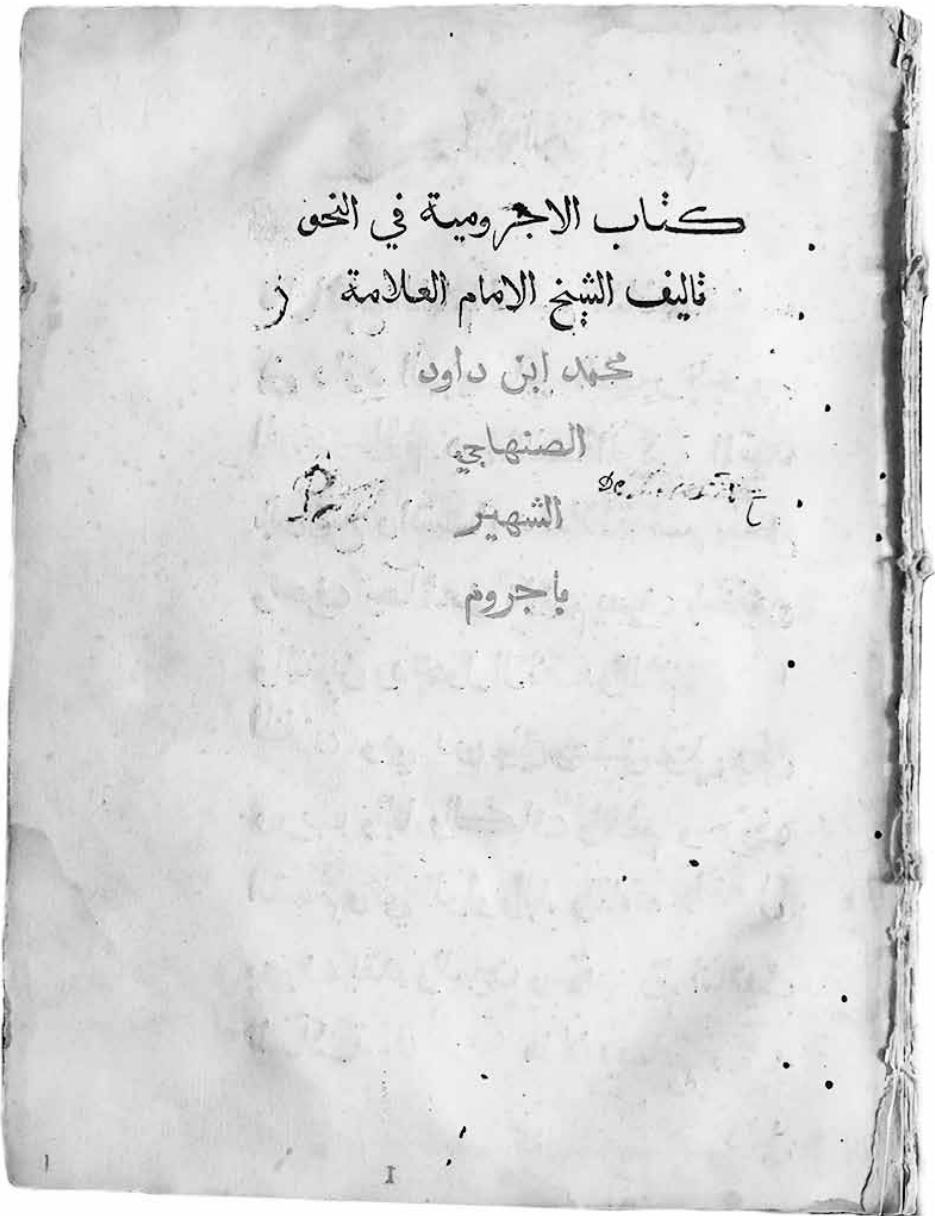 كتاب الاجرومية في النحو
تاليف الشيخ الامام العلامة
محمد ابن داود
الصنهاجي
الشهير
باجروم
I